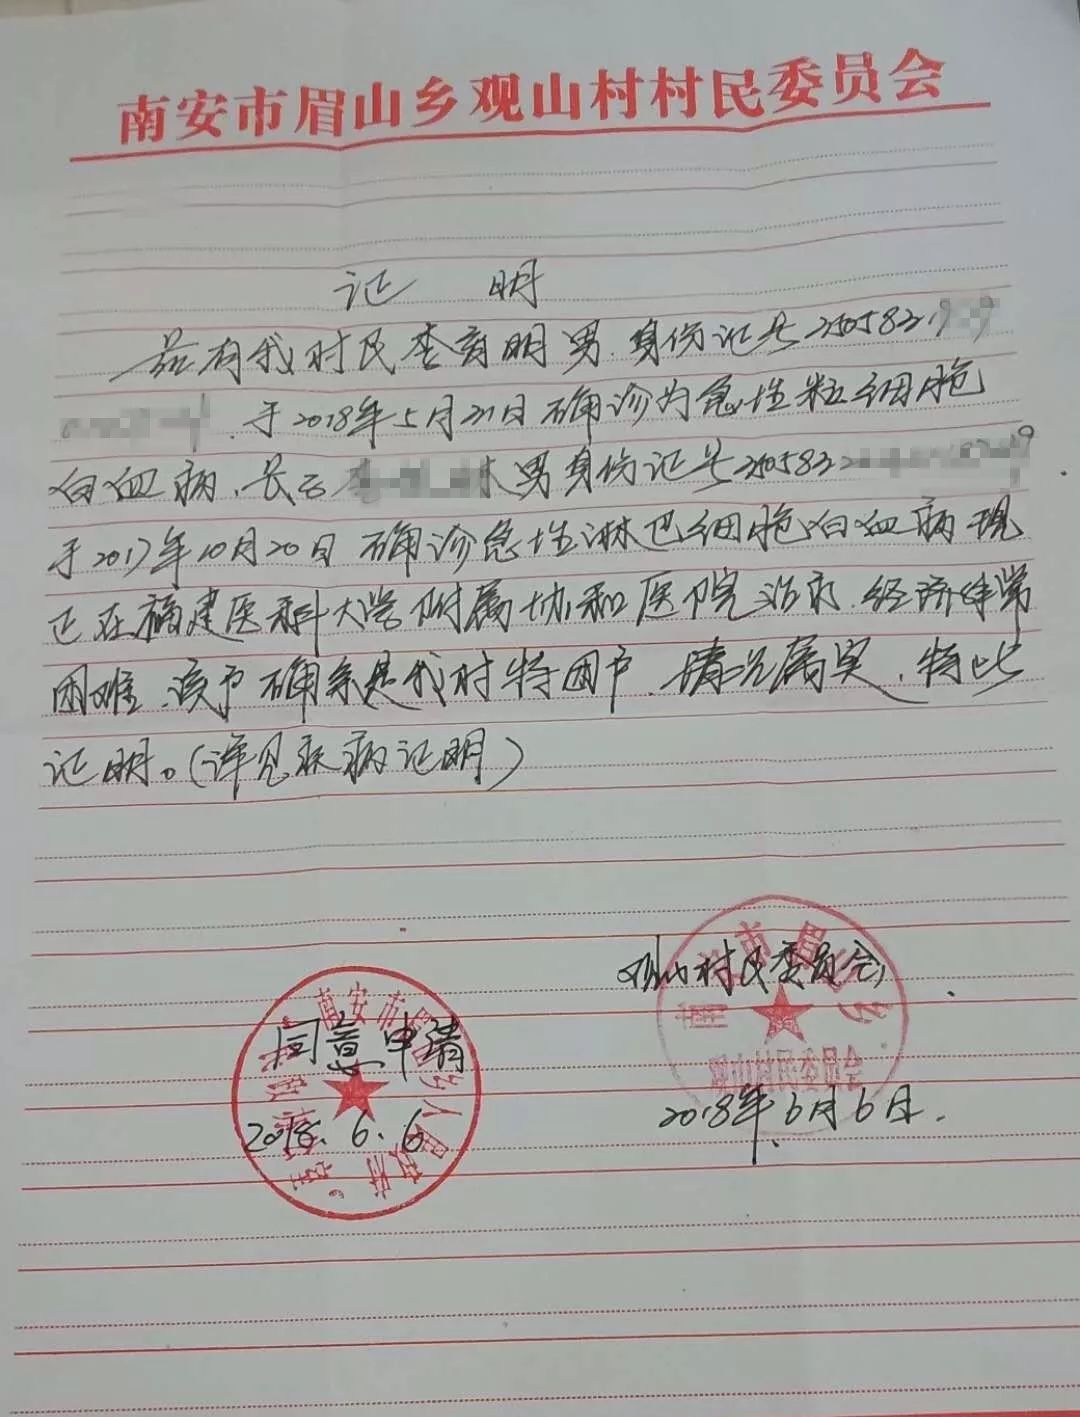 南安市眉山乡观山村村民委员会
证 明
兹有我村民李育明男.身份证号350583
.于2018年5月21日确诊为急性粒细胞
白血病、长子 男身份证号350583
于2017年10月20日确诊急性淋巴细胞白血病现
已在福建医科大学附属协和医院治疗.经济非常
困难.该户确系是我村特困户.情况属实.特此
证明。(详见疾病证明)
观山村民委员会
同意申请
2018年6月6日.
2018.6.6
南安市眉山乡
观山村民委员会
南安市眉山乡人民政府